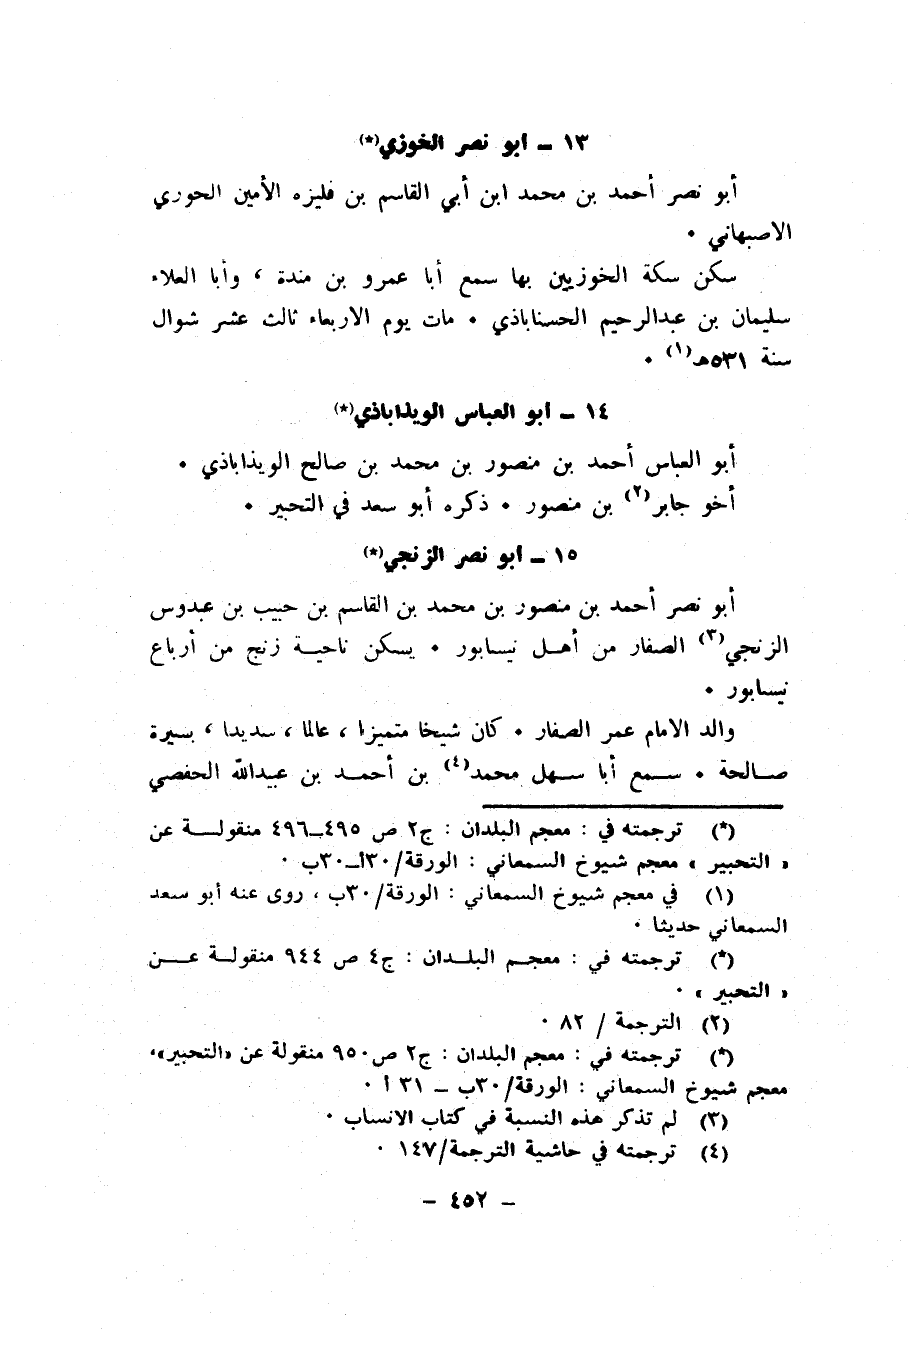 ١٣ ــ ابو نصر الخوزي(*)
أبو نصر أحمد بن محمد ابن أبي القاسم بن فليزه الأمين الحوري
الاصبهاني ٠
سكن سكة الخوزيين بها سمع أبا عمرو بن مندة ، وأبا العلاء
سليمان بن عبدالرحيم الحسناباذي ٠ مات يوم الاربعاء ثالث عشر شوال
سنة ٥٣١هـ(١) ٠
١٤ ــ ابو العباس الويذاباذي(*)
أبو العباس أحمد بن منصور بن محمد بن صالح الويذاباذي ٠
أخو جابر(٢) بن منصور ٠ ذكره أبو سعد في التحبير ٠
١٥ ــ ابو نصر الزنجي(*)
أبو نصر أحمد بن منصور بن محمد بن القاسم بن حبيب بن عبدوس
الزنجي(٣) الصفار من أهــل نيسابور ٠ يسكن ناحيــة زنج من أرباع
نيسابور ٠
والد الامام عمر الصفار ٠ كان شيخا متميزا ، عالما ، سديدا ، بسيرة
صــالحة ٠ ســمع أبا ســهل محمد(٤) بن أحمــد بن عبيدالله الحفصي
(*) ترجمته في : معجم البلدان : ج٢ ص ٤٩٥ــ٤٩٦ منقولــة عن
« التحبير » معجم شيوخ السمعاني : الورقة/٣٠أــ٣٠ب ٠
(١) في معجم شيوخ السمعاني : الورقة/٣٠ب ، روى عنه أبو سعد
السمعاني حديثا ٠
(*) ترجمته في : معجــم البلــدان : ج٤ ص ٩٤٤ منقولــة عــن
« التحبير » ٠
(٢) الترجمة / ٨٢ ٠
(*) ترجمته في : معجم البلدان : ج٢ ص٩٥٠ منقولة عن «التحبير»،
معجم شيوخ السمعاني : الورقة/٣٠ب ــ ٣١ أ ٠
(٣) لم تذكر هذه النسبة في كتاب الانساب ٠
(٤) ترجمته في حاشية الترجمة/١٤٧ ٠
ــ ٤٥٢ ــ